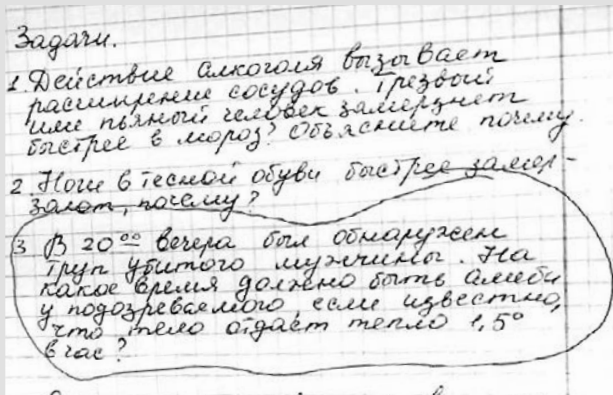 Задачи.
1. Действие алкоголя вызывает
расширение сосудов. Трезвый
или пьяный человек замерзнет
быстрее в мороз? Объясните почему.
2. Ноги в тесной обуви быстрее замер-
зают, почему?
3. В 20⁰⁰ вечера был обнаружен
труп убитого мужчины. На
какое время должно быть алиби
у подозреваемого, если известно,
что тело отдаёт тепло 1,5°
в час?